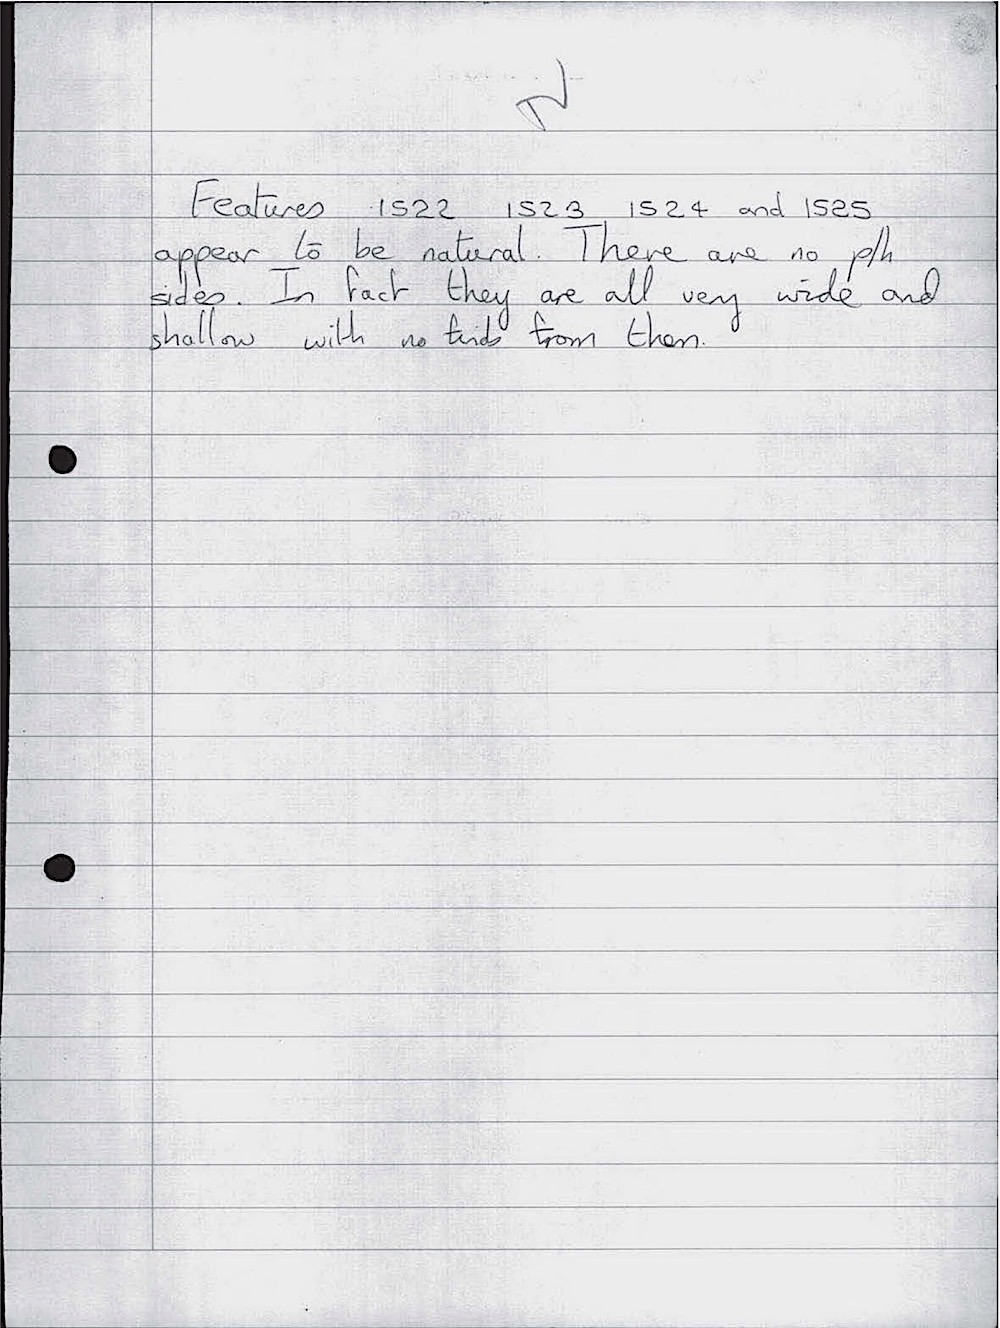 Features 1522 1523 1524 and 1525
appear to be natural. There are no p/h
sides. In fact they are all very wide and
shallow with no finds from them.